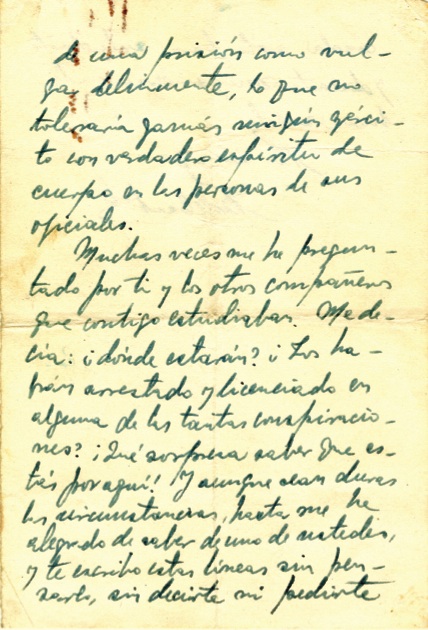 de una prisión como vul-
gar delincuente, lo que no
toleraría jamás ningún ejérci-
to con verdadero espíritu de
cuerpo en las personas de sus
oficiales.
Muchas veces me he pregun-
tado por ti y los otros compañeros
que contigo estudiaban. Me de-
cía: ¿dónde estarán? ¿Los ha-
brán arrestado y licenciado en
alguna de las tantas conspiracio-
nes? ¡Qué sorpresa saber que es-
tás por aquí! Y aunque sean duras
las circunstancias, hasta me he
alegrado de saber de uno de ustedes,
y te escribo estas líneas sin pen-
sarlo, sin decirte ni pedirte